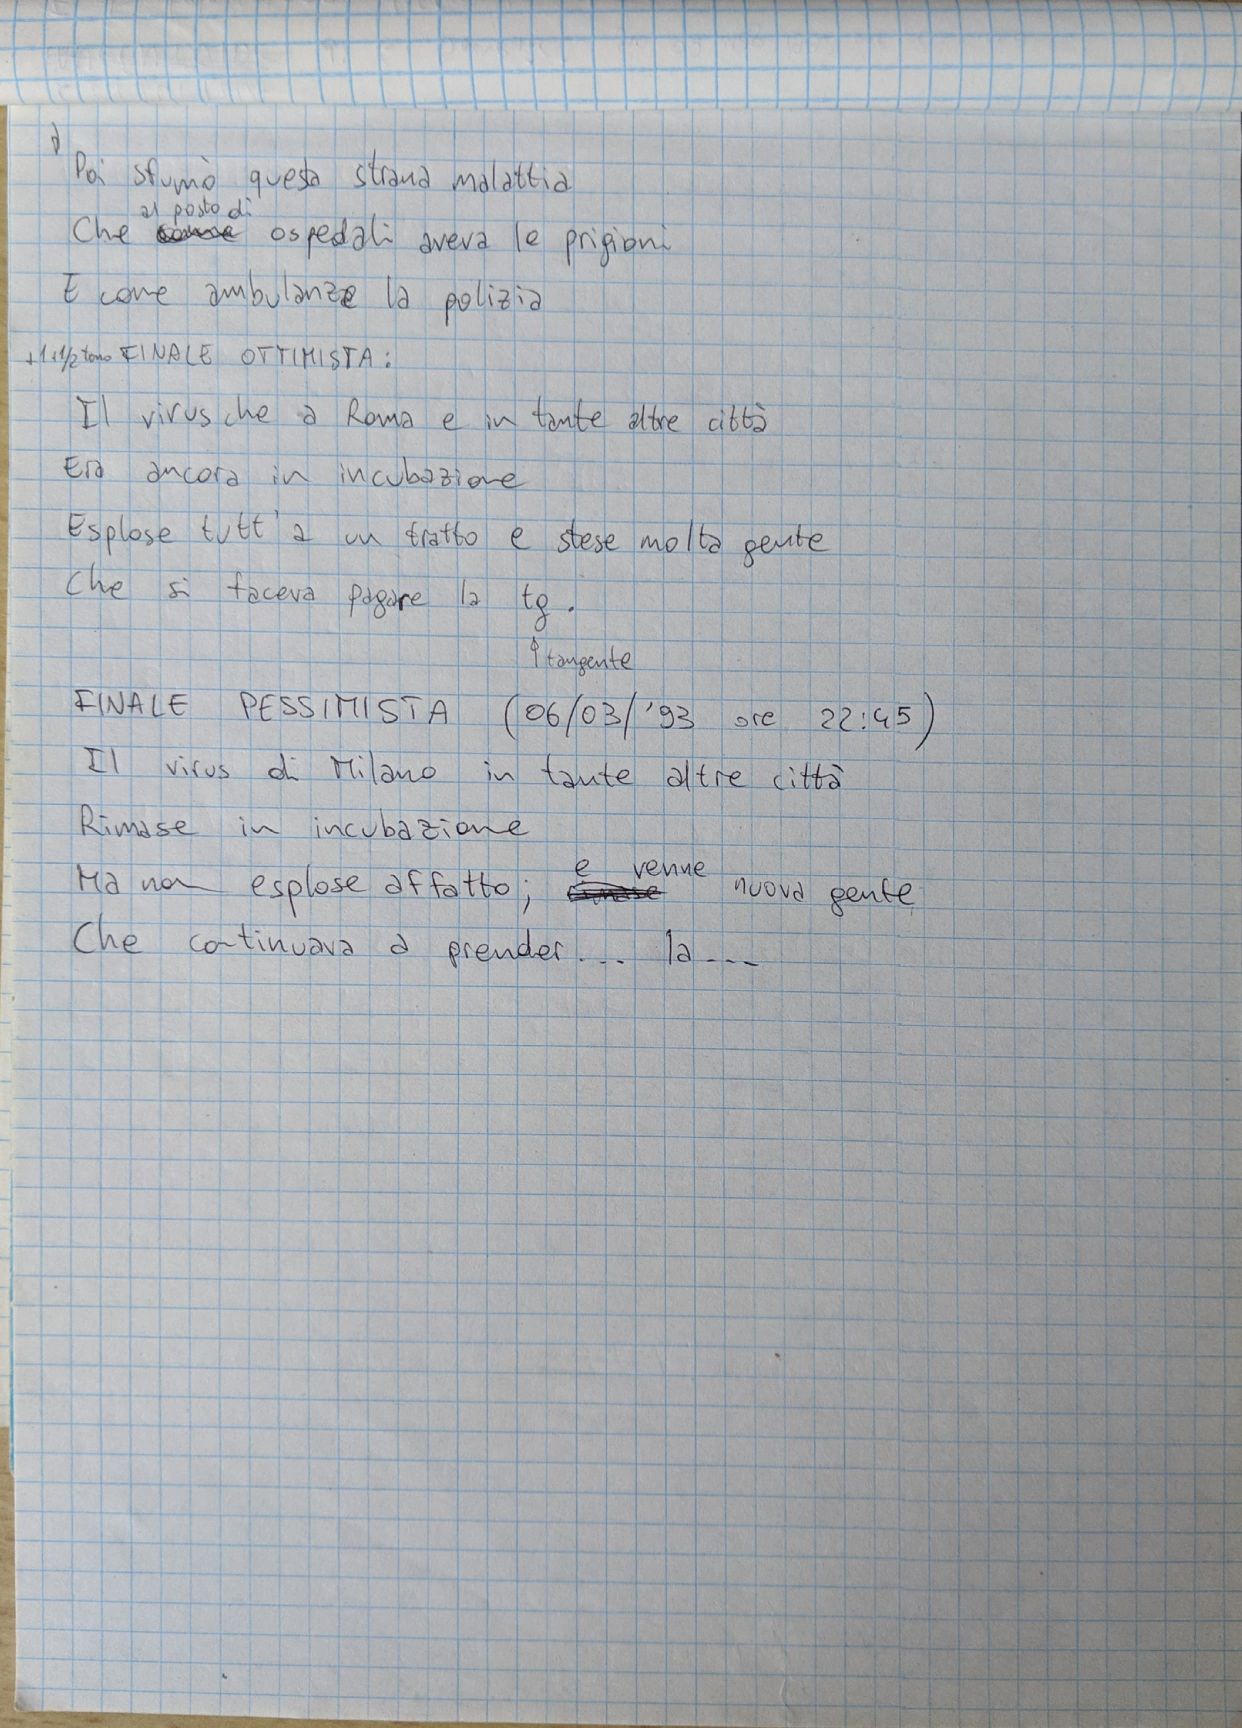 Poi sfumò questa strana malattia
al posto di
Che ospedali aveva le prigioni
E come ambulanze la polizia
FINALE OTTIMISTA:
Il virus che a Roma e in tante altre città
Era ancora in incubazione
Esplose tutt'a un tratto e stese molta gente
Che si faceva pagare la tg.
↑ tangente
FINALE PESSIMISTA (06/03/'93 ore 22:45)
Il virus di Milano in tante altre città
Rimase in incubazione
e venne
Ma non esplose affatto; nuova gente
Che continuava a prender... la...